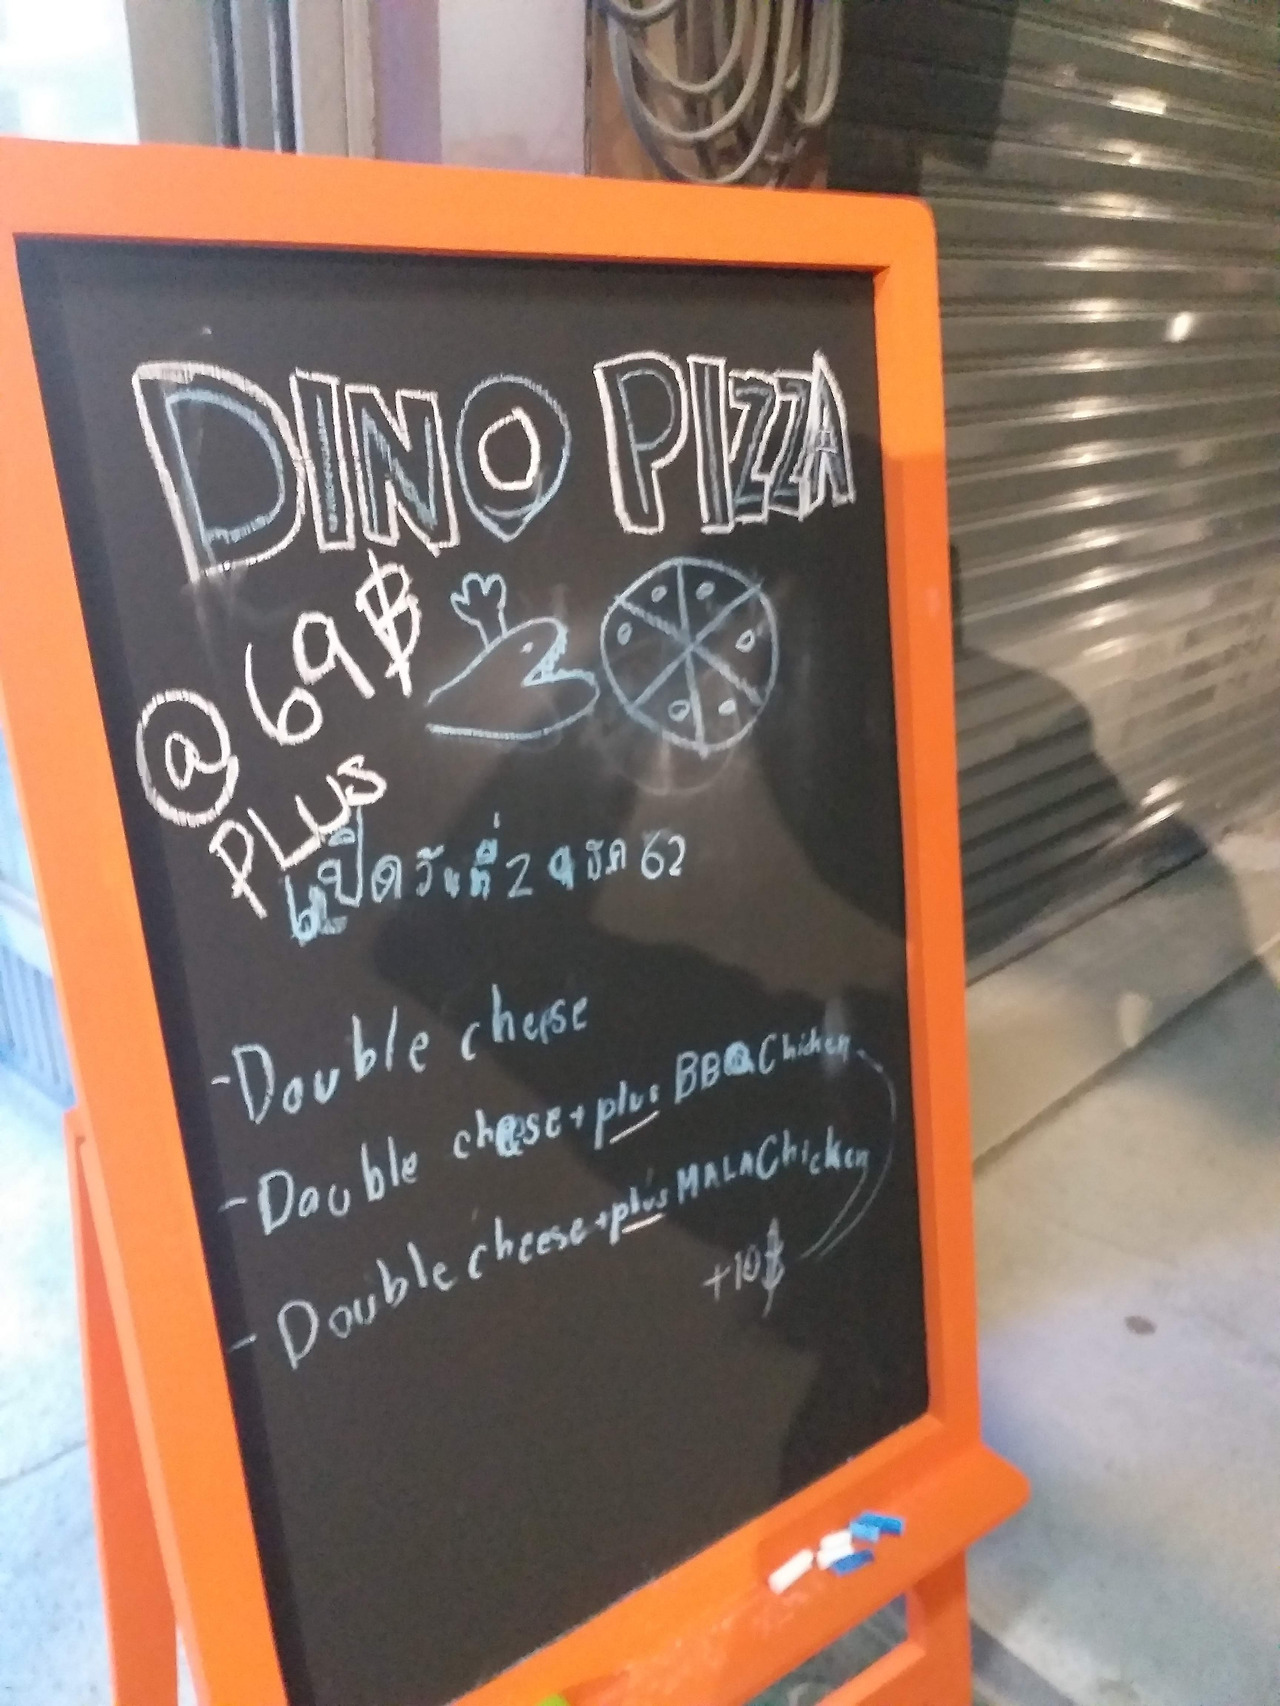 DINO PIZZA
@ 69฿
PLUS
เปิดวันที่ 29 ธค 62
-Double cheese
-Double cheese + plus BBQ Chicken
-Double cheese + plus MALA Chicken
+10฿